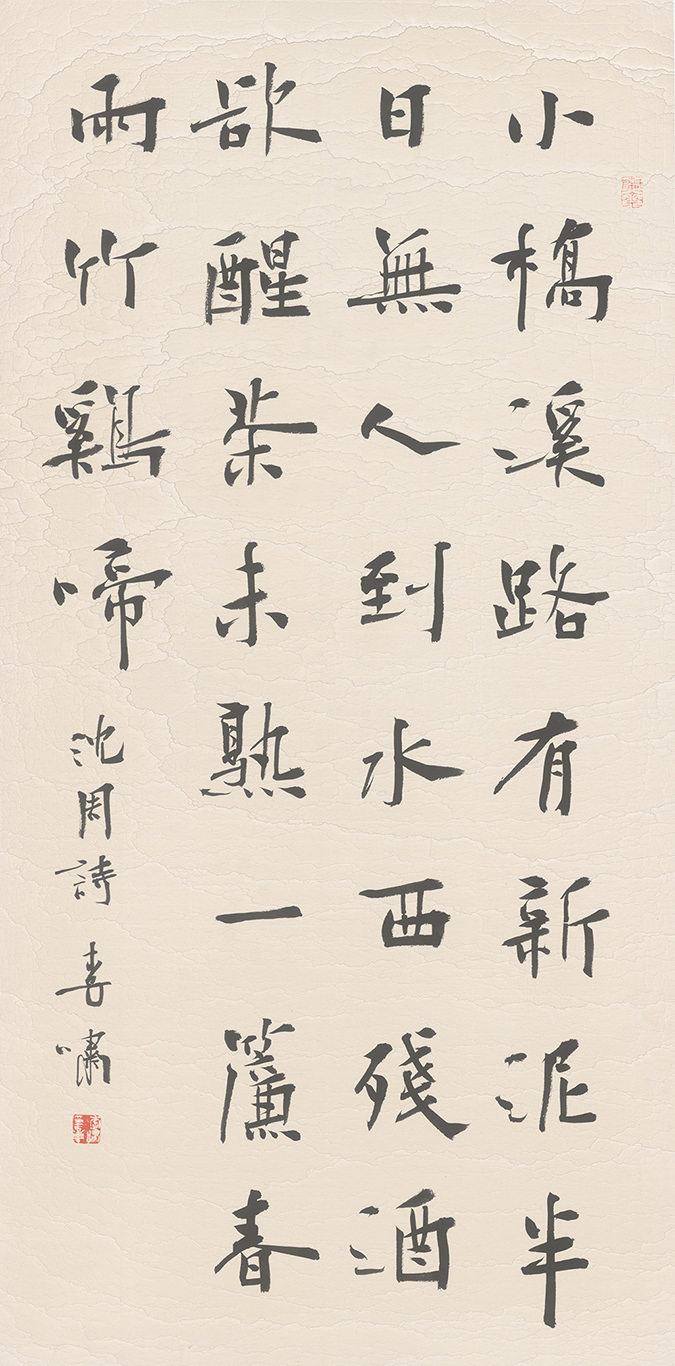 小橋溪路有新泥半
日無人到水西殘酒
欲醒茶未熟一簾春
雨竹鷄啼
沈周詩 春嘯